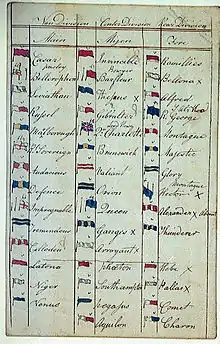 Van Division Center Division Rear Division
Main Mizen Fore
Caesar Invincible Ramillies
Bellerophon Barfleur Bellona x
Leviathan Theseus x Alfred
Russel Gibraltar R. George
Marlborough Q Charlotte Montagu
R Sovereign Brunswick Majestic
Audacious Valiant Glory
Defence Orion Hector x
Impregnable Queen Alexander x
Tremendous Ganges x Thunderer
Culloden Arrogant x
Latona Phaeton Hebe x
Niger Southampton Pallas x
Venus Pegasus Comet
Aquilon Charon